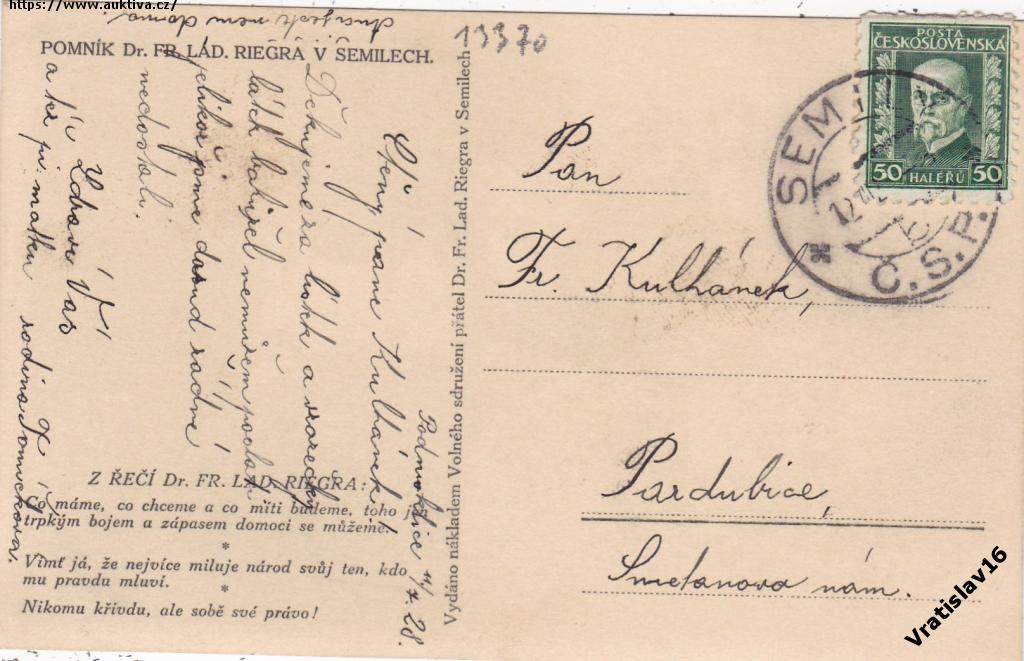 https://www.auktiva.cz/
13370
POMNÍK Dr. FR. LAD. RIEGRA V SEMILECH.
11/7. 28.
Ctěný pane Kulhánek!
Děkujeme za lístek a
látek nemůžem poslati
jelikož jsme dosud žádné
nedostali.
Zdraví Vás
a též p. matku rodina
Z ŘEČÍ Dr. FR. LAD. RIEGRA:
Co máme, co chceme a co míti budeme, toho jen
trpkým bojem a zápasem domoci se můžeme.
*
Vímť já, že nejvíce miluje národ svůj ten, kdo
mu pravdu mluví.
*
Nikomu křivdu, ale sobě své právo!
Vydáno nákladem Volného sdružení přátel Dr. Fr. Lad. Riegra v Semilech
POŠTA
ČESKOSLOVENSKÁ
50 HALÉŘŮ 50
SEMILY
Č.S.P.
Pan
Fr. Kulhánek,
Pardubice,
Smetanovo nám.
Vratislav16